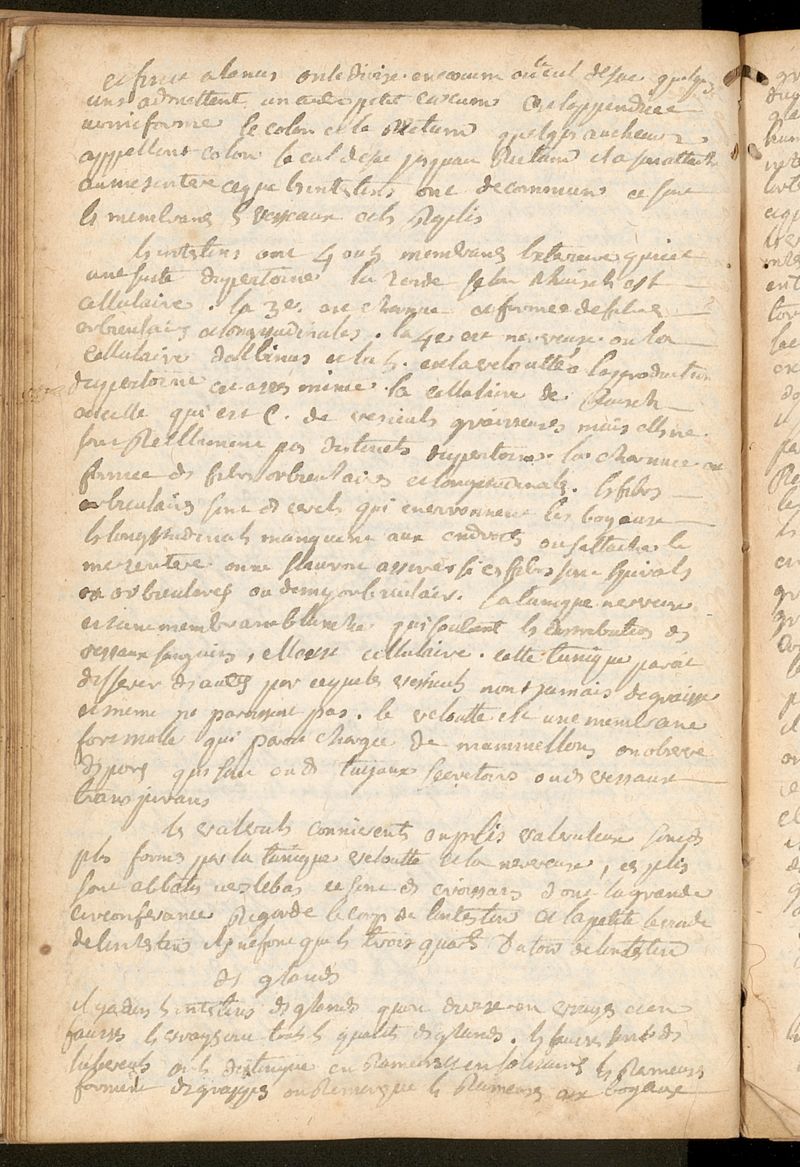 et finit a lanus on le divise en cœcum ou cul de sac quelques
uns admettent un autre petit cœcum cest lappendice
vermiforme le colon et le Rectum quelques autheurs
appellent colon le cul de sac jusquau Rectum il a son attache
au mesentere ce que les intestins ont de commun ce sont
les membranes les vesseaux et les Replis
les intestins ont 4 ou 5 membranes lexterieure qui est
une suite du peritoine la 2nde selon Rhuisch est
cellulaire . la 3e. est charnue et formee de fibres
orbiculaires et longitudinales . la 4e est nerveuse ou la
cellulaire dalbinus et la 5. est la veloutté la production
du peritoine est asses mince . la cellulaire de Ruisch
est celle qui est C. de vesicules graisseuses mais elle ne
sont Reellement pas distincts du peritoine . la charnue est
formee de fibres orbiculaires et longitudinales . les fibres
orbiculaires sont des cercles qui environnent les boyeaux
les longitudinales manquent aux endroits ou sattache le
mesentere on ne scauroit assurer si ces fibres sont spirals
ou orbiculaires ou demy orbiculaires . la tunique nerveuse
est une membrane blanche qui soutient les distributions des
vesseaux sanguins , elle est cellulaire . cette tunique parait
differer des autres par ce que les vesicules nont jamais de graisse
et meme ne paroissent pas . le veloutte est une membrane
fort molle qui parait chargee de mammellons on observe
des pores qui sont ou des tuyaux secretoires ou des vesseaux
les valvuls connivents ou plis valvuleux sont des
plis formes par la tunique veloutte et la nerveuse , ces plis
sont abbatus vers le bas ce sont des croissans dont la grande
circonferance Regarde le corps de lintestin et la petite le vuide
de lintestin ils ne font que les trois quarts du tour de lintestin
des glands
il y a dans les intestins des glands quon divise en vrayes et en
fausses les vrayes ont touts les qualites des glands . les fausses sont des
tubercules on les distingue en Rameuses en solitaires les Rameuses
forment des grappes on Remarque les Rameuses aux boyeaux